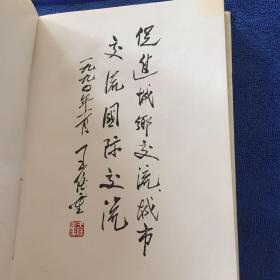 促进城乡交流、城市
交流国际交流
一九九〇年一月 王任重